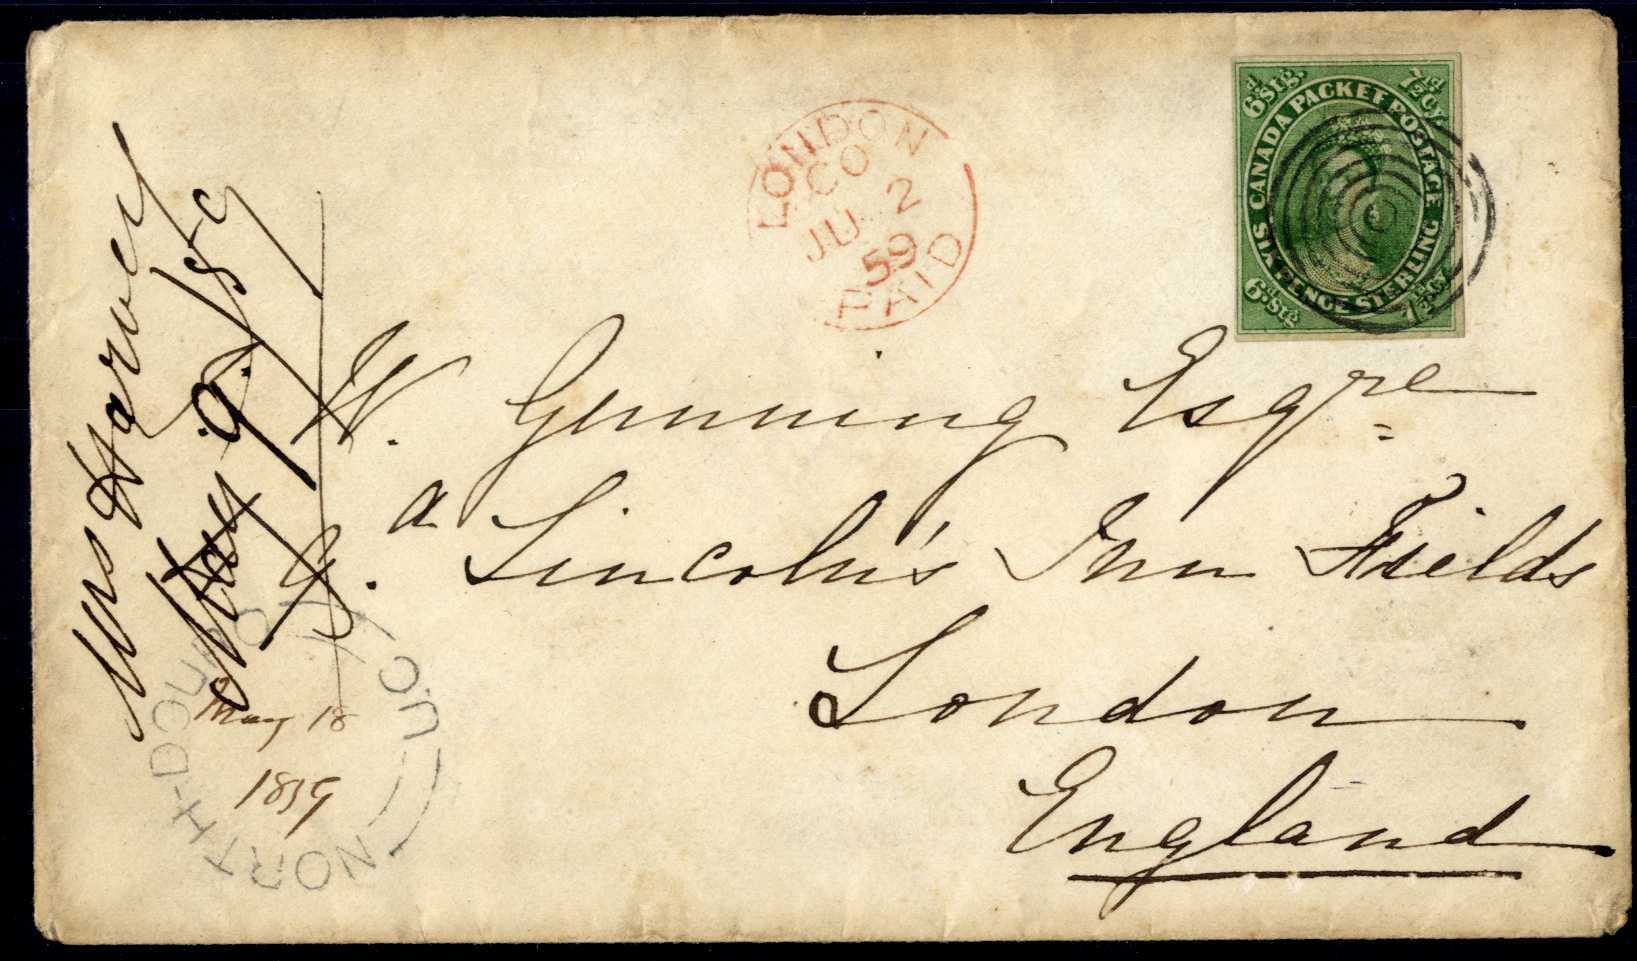 6d Stg. 7½d Cy.
CANADA PACKET POSTAGE
SIX PENCE STERLING
6d Stg 7½d Cy.
LONDON
CO
JU 2
59
PAID
Mrs Harvey
May 9/59
W. Gunning Esqre
9. a Lincoln's Inn Fields
London
England
NORTH-DOURO U.C.
May 18
1859